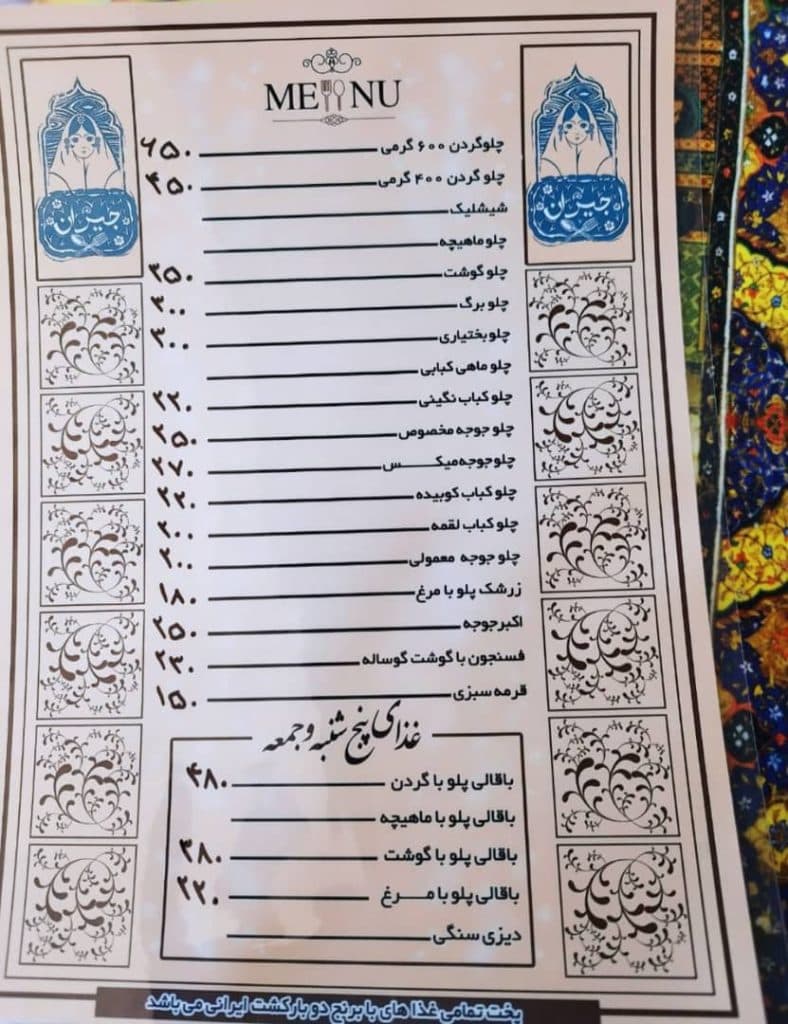 MENU
جیران
جیران
چلوگردن ۶۰۰ گرمی ۶۵۰
چلو گردن ۴۰۰ گرمی ۴۵۰
شیشلیک
چلو ماهیچه
چلو گوشت ۳۵۰
چلو برگ ۳۰۰
چلو بختیاری ۳۰۰
چلو ماهی کبابی
چلو کباب نگینی ۲۲۰
چلو جوجه مخصوص ۲۵۰
چلو جوجه میکس ۲۷۰
چلو کباب کوبیده ۲۲۰
چلو کباب لقمه ۲۰۰
چلو جوجه معمولی ۲۰۰
زرشک پلو با مرغ ۱۸۰
اکبرجوجه ۲۵۰
فسنجون با گوشت گوساله ۲۳۰
قرمه سبزی ۱۵۰
غذای پنج شنبه و جمعه
باقالی پلو با گردن ۴۸۰
باقالی پلو با ماهیچه
باقالی پلو با گوشت ۳۸۰
باقالی پلو با مرغ ۲۲۰
دیزی سنگی
پخت تمامی غذا های با برنج دو بار کشت ایرانی می باشد